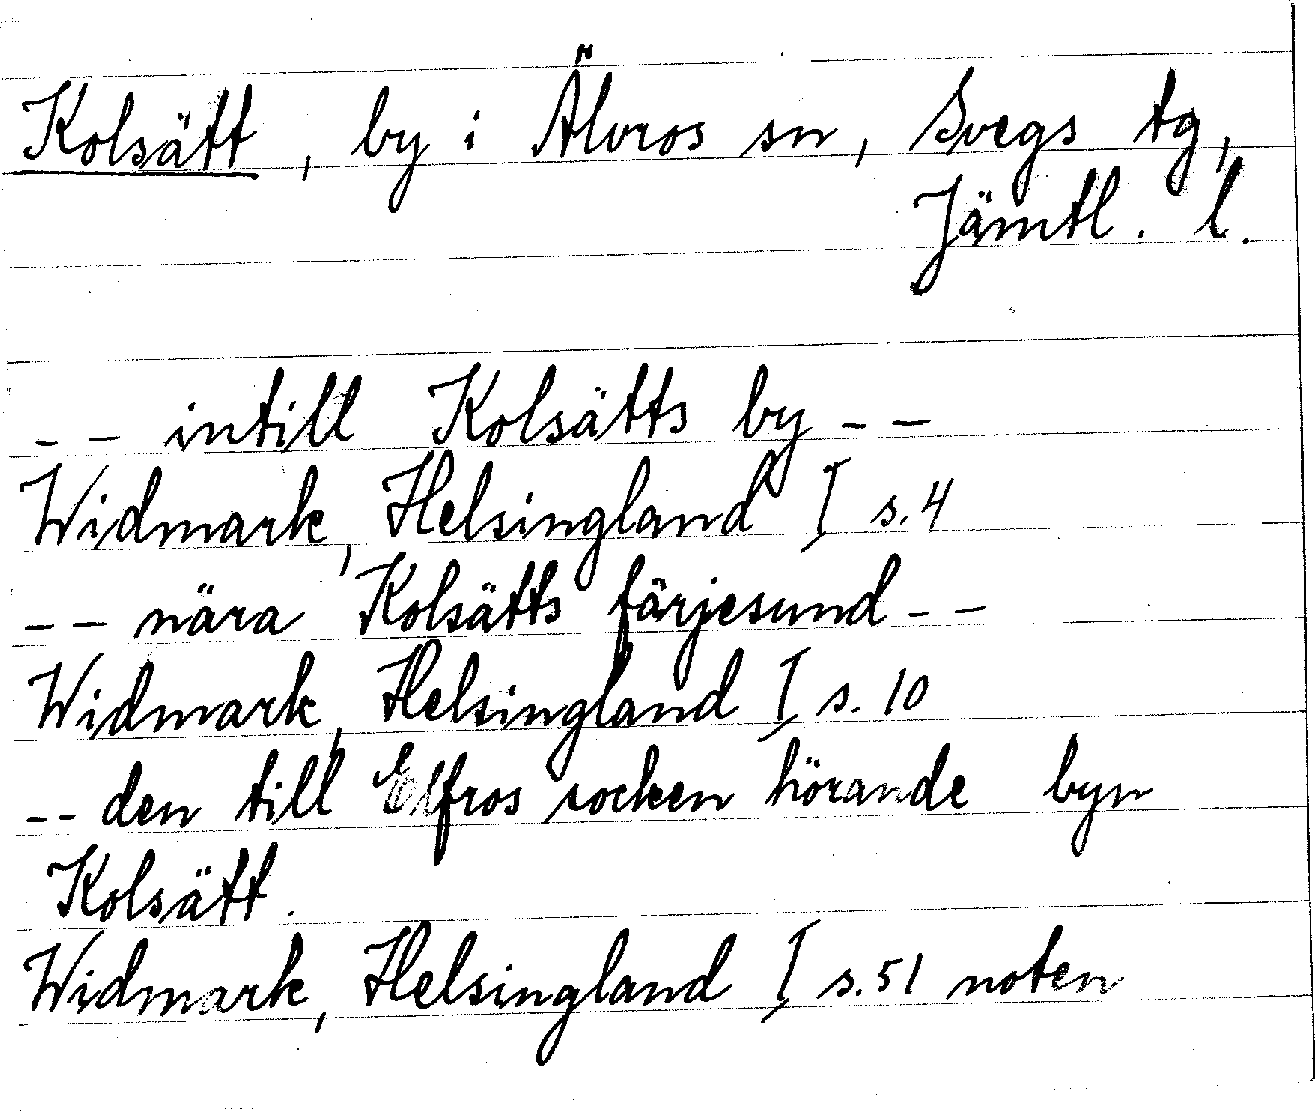 Kolsätt, by i Älvros sn, Svegs tg,
Jämtl. l.
-- intill Kolsätts by --
Widmark, Helsingland I s. 4
-- nära Kolsätts färjesund --
Widmark, Helsingland I s. 10
-- den till Elfros socken hörande byn
Kolsätt.
Widmark, Helsingland I s. 51 noten